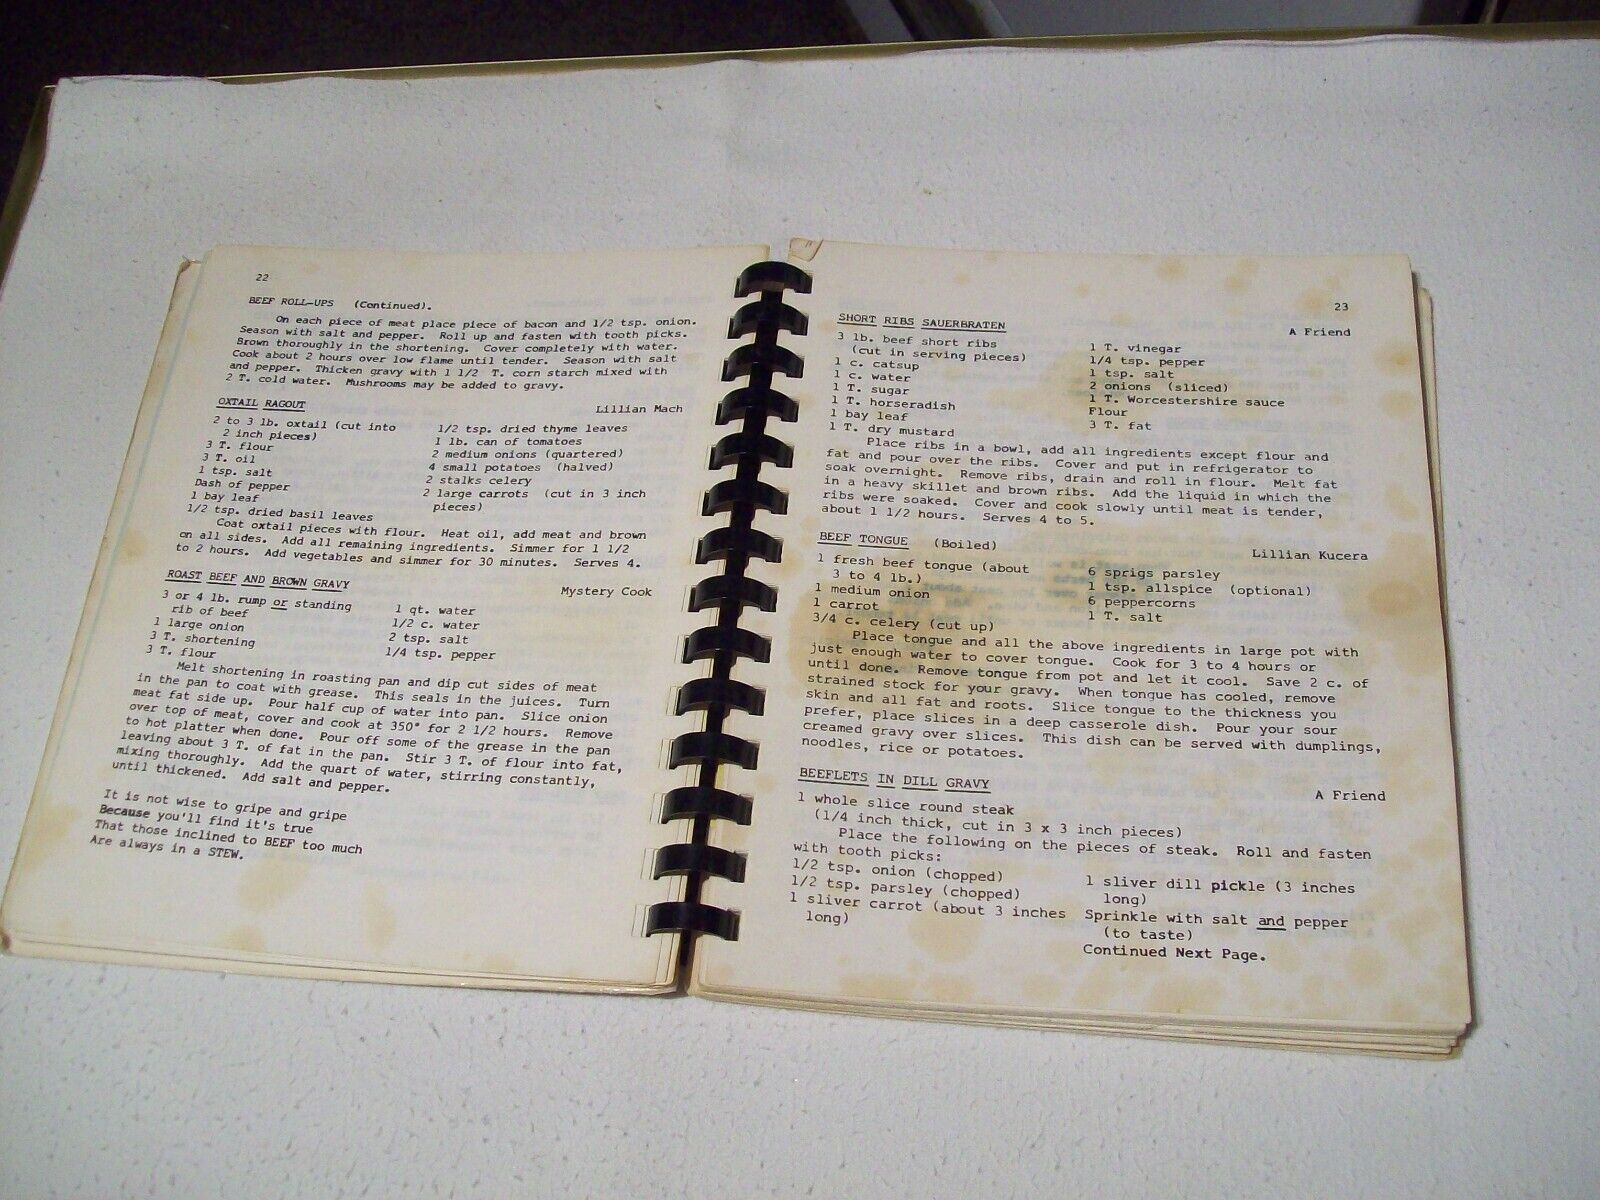 22
BEEF ROLL-UPS (Continued).
On each piece of meat place piece of bacon and 1/2 tsp. onion.
Season with salt and pepper. Roll up and fasten with tooth picks.
Brown thoroughly in the shortening. Cover completely with water.
Cook about 2 hours over low flame until tender. Season with salt
and pepper. Thicken gravy with 1 1/2 T. corn starch mixed with
2 T. cold water. Mushrooms may be added to gravy.
OXTAIL RAGOUT
Lillian Mach
2 to 3 lb. oxtail (cut into
2 inch pieces)
3 T. flour
3 T. oil
1 tsp. salt
Dash of pepper
1 bay leaf
1/2 tsp. dried basil leaves
1/2 tsp. dried thyme leaves
1 lb. can of tomatoes
2 medium onions (quartered)
4 small potatoes (halved)
2 stalks celery
2 large carrots (cut in 3 inch
pieces)
Coat oxtail pieces with flour. Heat oil, add meat and brown
on all sides. Add all remaining ingredients. Simmer for 1 1/2
to 2 hours. Add vegetables and simmer for 30 minutes. Serves 4.
ROAST BEEF AND BROWN GRAVY
Mystery Cook
3 or 4 lb. rump or standing
rib of beef
1 large onion
3 T. shortening
3 T. flour
1 qt. water
1/2 c. water
2 tsp. salt
1/4 tsp. pepper
Melt shortening in roasting pan and dip cut sides of meat
in the pan to coat with grease. This seals in the juices. Turn
meat fat side up. Pour half cup of water into pan. Slice onion
over top of meat, cover and cook at 350° for 2 1/2 hours. Remove
to hot platter when done. Pour off some of the grease in the pan
leaving about 3 T. of fat in the pan. Stir 3 T. of flour into fat,
mixing thoroughly. Add the quart of water, stirring constantly,
until thickened. Add salt and pepper.
It is not wise to gripe and gripe
Because you'll find it's true
That those inclined to BEEF too much
Are always in a STEW.
23
SHORT RIBS SAUERBRATEN
A Friend
3 lb. beef short ribs
(cut in serving pieces)
1 c. catsup
1 c. water
1 T. sugar
1 T. horseradish
1 bay leaf
1 T. dry mustard
1 T. vinegar
1/4 tsp. pepper
1 tsp. salt
2 onions (sliced)
1 T. Worcestershire sauce
Flour
3 T. fat
Place ribs in a bowl, add all ingredients except flour and
fat and pour over the ribs. Cover and put in refrigerator to
soak overnight. Remove ribs, drain and roll in flour. Melt fat
in a heavy skillet and brown ribs. Add the liquid in which the
ribs were soaked. Cover and cook slowly until meat is tender,
about 1 1/2 hours. Serves 4 to 5.
BEEF TONGUE (Boiled)
Lillian Kucera
1 fresh beef tongue (about
3 to 4 lb.)
1 medium onion
1 carrot
3/4 c. celery (cut up)
6 sprigs parsley
1 tsp. allspice (optional)
6 peppercorns
1 T. salt
Place tongue and all the above ingredients in large pot with
just enough water to cover tongue. Cook for 3 to 4 hours or
until done. Remove tongue from pot and let it cool. Save 2 c. of
strained stock for your gravy. When tongue has cooled, remove
skin and all fat and roots. Slice tongue to the thickness you
prefer, place slices in a deep casserole dish. Pour your sour
creamed gravy over slices. This dish can be served with dumplings,
noodles, rice or potatoes.
BEEFLETS IN DILL GRAVY
A Friend
1 whole slice round steak
(1/4 inch thick, cut in 3 x 3 inch pieces)
Place the following on the pieces of steak. Roll and fasten
with tooth picks:
1/2 tsp. onion (chopped)
1/2 tsp. parsley (chopped)
1 sliver carrot (about 3 inches
long)
1 sliver dill pickle (3 inches
long)
Sprinkle with salt and pepper
(to taste)
Continued Next Page.